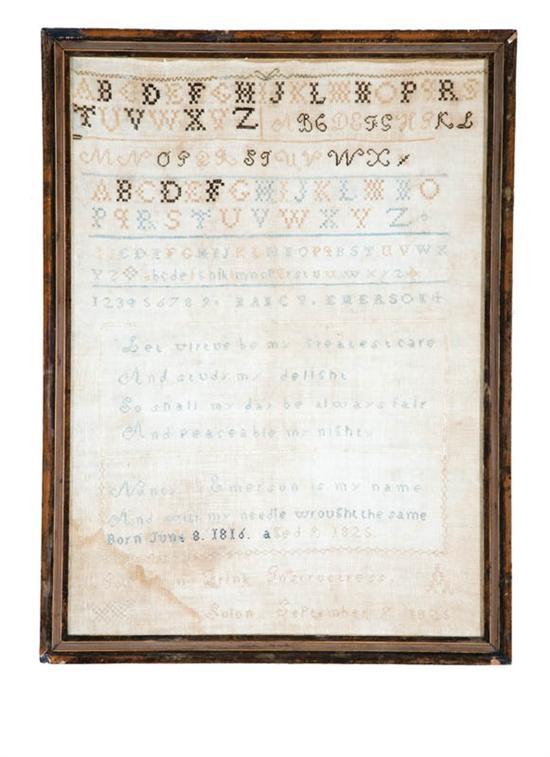 A B C D E F G H I J K L M N O P R S
T U V W X Y Z A B C D E F G H I K L
M N O P Q R S T U V W X
A B C D E F G H I J K L M N O
P Q R S T U V W X Y Z
C D E F G H I J K L M N O P Q R S T U V W X
Y Z a b c d e f g h i k l m n o p q r s t u v w x y z
1 2 3 4 5 6 7 8 9 NANCY EMERSON
Let virtue be my greatest care
And study my delight
So shall my day be always fair
And peaceable my night
Nancy Emerson is my name
And with my needle wrought the same
Born June 8. 1816. aged 9. 1825.
Instructress.
Solon September 8. 1825